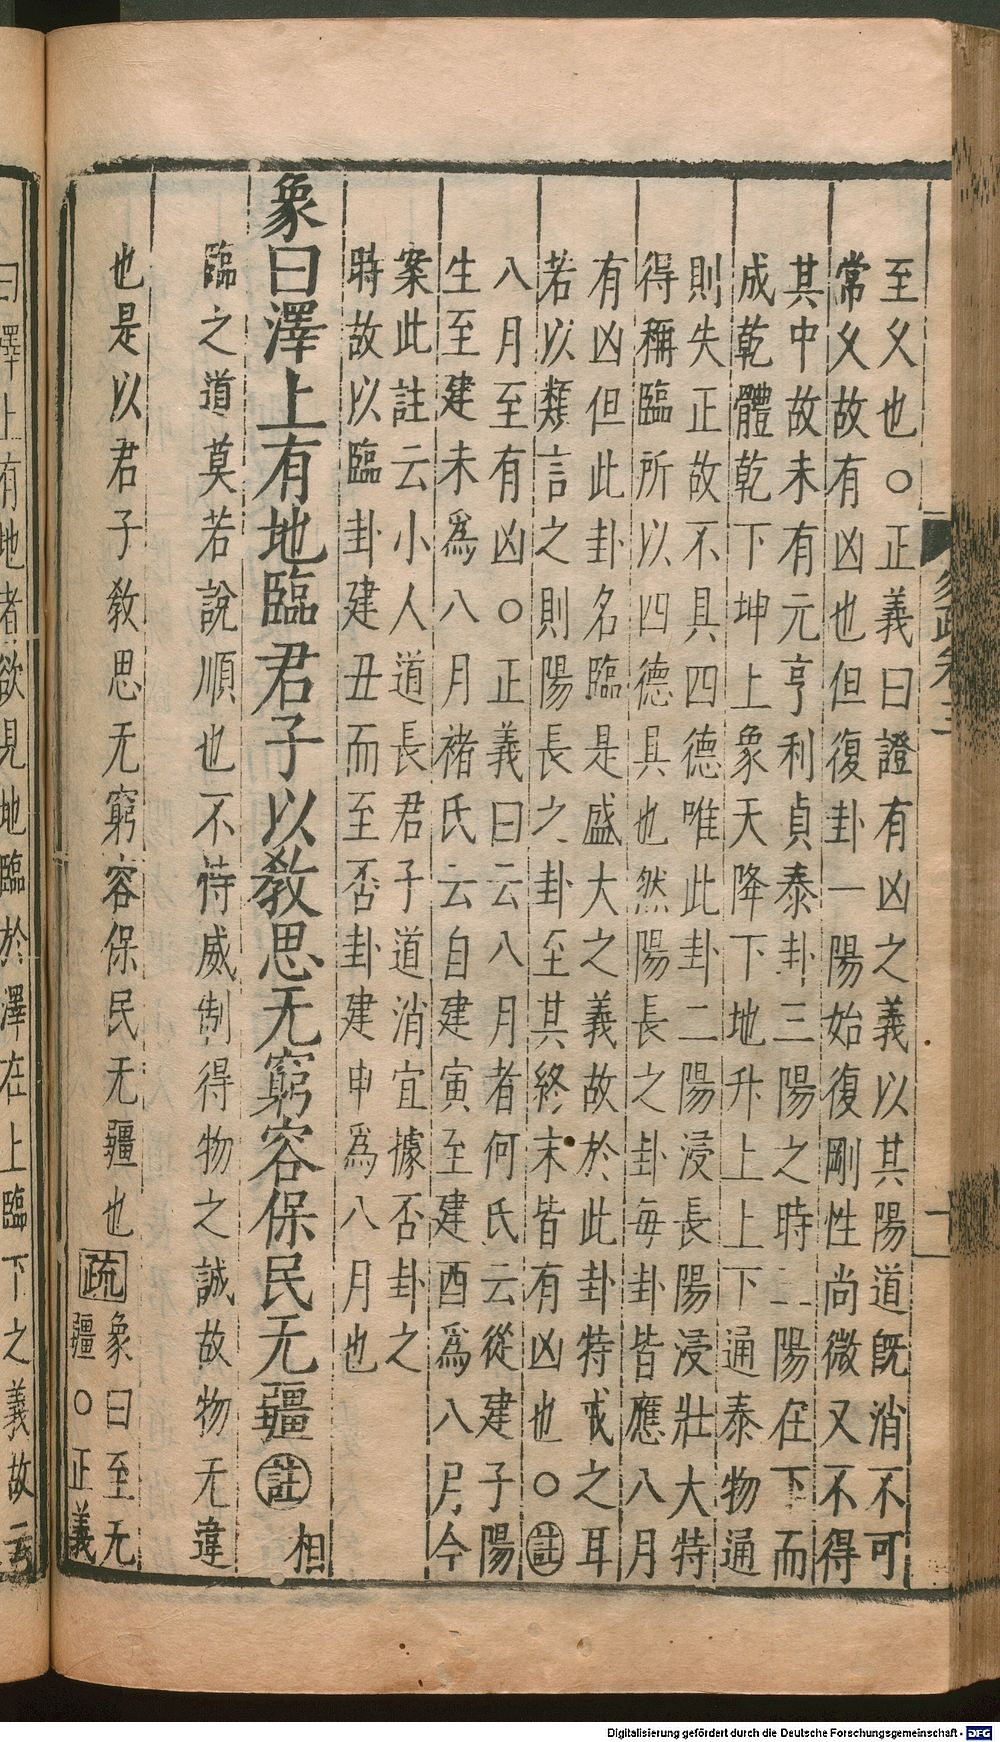 至乂也○正義曰證有凶之義以其陽道旣消不可
常乂故有凶也但復卦一陽始復剛性尚微又不得
其中故未有元亨利貞泰卦三陽之時二陽在下而
成乾體乾下坤上象天降下地升上上下通泰物通
則失正故不具四德唯此卦二陽浸長陽浸壯大特
得稱臨所以四德具也然陽長之卦每卦皆應八月
有凶但此卦名臨是盛大之義故於此卦特戒之耳
若以類言之則陽長之卦至其終末皆有凶也○註
八月至有凶○正義曰云八月者何氏云從建子陽
生至建未爲八月褚氏云自建寅至建酉爲八月今
案此註云小人道長君子道消宜據否卦之
時故以臨卦建丑而至否卦建申爲八月也
象曰澤上有地臨君子以敎思无窮容保民无疆註相
臨之道莫若說順也不恃威制得物之誠故物无違
也是以君子敎思无窮容保民无疆也疏象曰至无
疆○正義
曰澤上有地者欲見地臨於澤在上臨下之義故云
易疏卷三
十
Digitalisierung gefördert durch die Deutsche Forschungsgemeinschaft - DFG